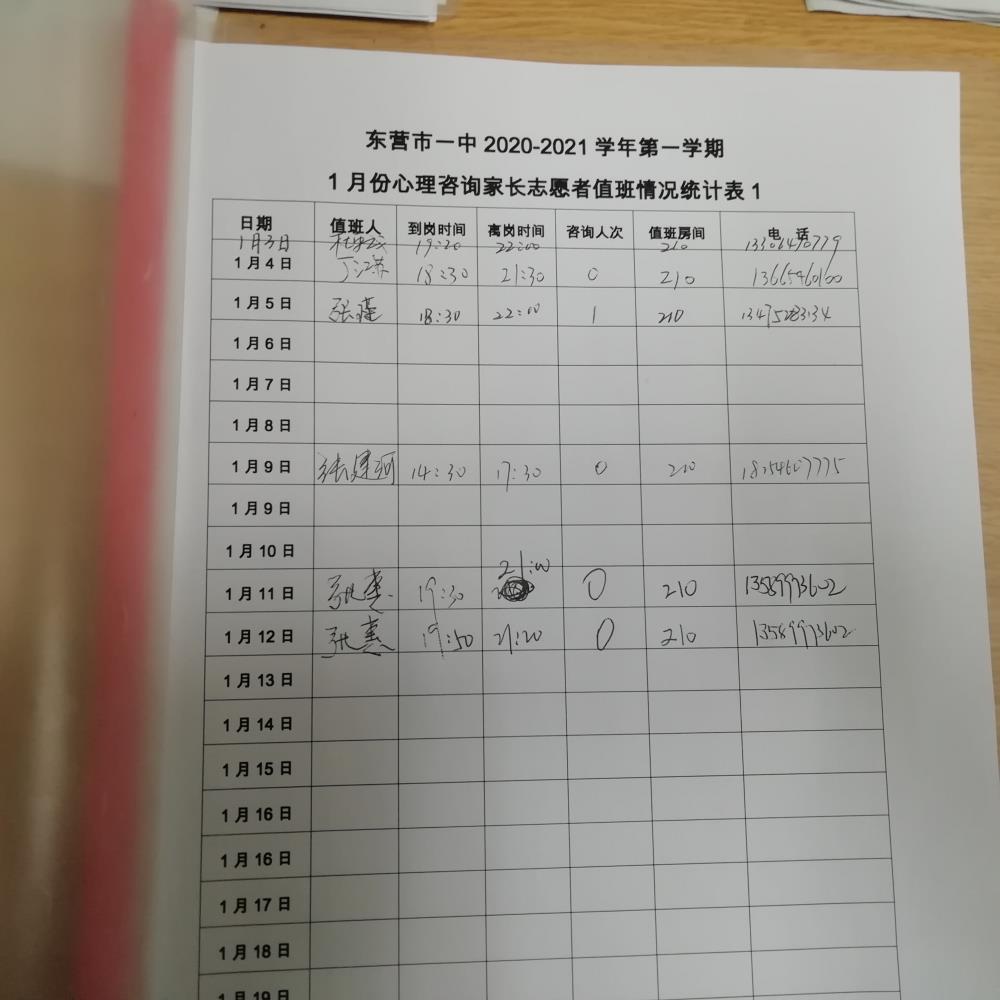 东营市一中 2020-2021 学年第一学期
1 月份心理咨询家长志愿者值班情况统计表 1
日期 值班人 到岗时间 离岗时间 咨询人次 值班房间 电 话
1月3日 19:20 22:00 210
1 月 4 日 丁江燕 18:30 21:30 0 210
1 月 5 日 张瑾 18:30 22:00 1 210
1 月 6 日
1 月 7 日
1 月 8 日
1 月 9 日 张建河 14:30 17:30 0 210 18254607775
1 月 9 日
1 月 10 日
1 月 11 日 19:30 21:00 0 210 13589993602
1 月 12 日 19:50 21:20 0 210 13589993602
1 月 13 日
1 月 14 日
1 月 15 日
1 月 16 日
1 月 16 日
1 月 17 日
1 月 18 日
1 月 19 日